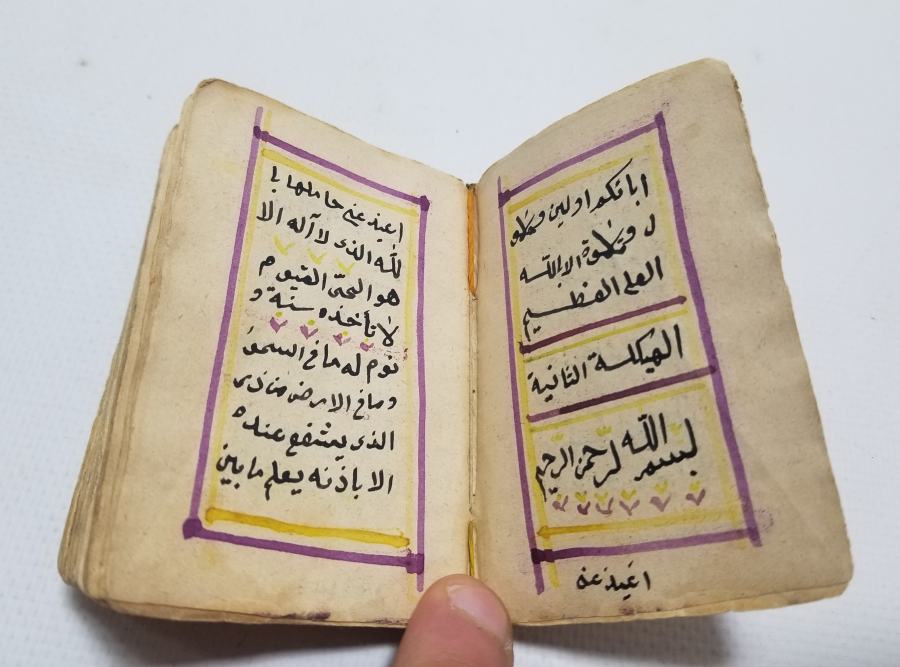 ابائكم اولين و
ل و قوة الا بالله
العلى العظيم
الهيكلة الثانية
بسم الله الرحمن الرحيم
اعيذ عنه
اعيذ عنه حاملها با
لله الذى لا آله الا
هو الحىّ القيوم
لا تأخذه سنة و
نوم له ما فى السمو
وما فى الارض من ذى
الذى يشفع عنده
الا باذنه يعلم ما بين